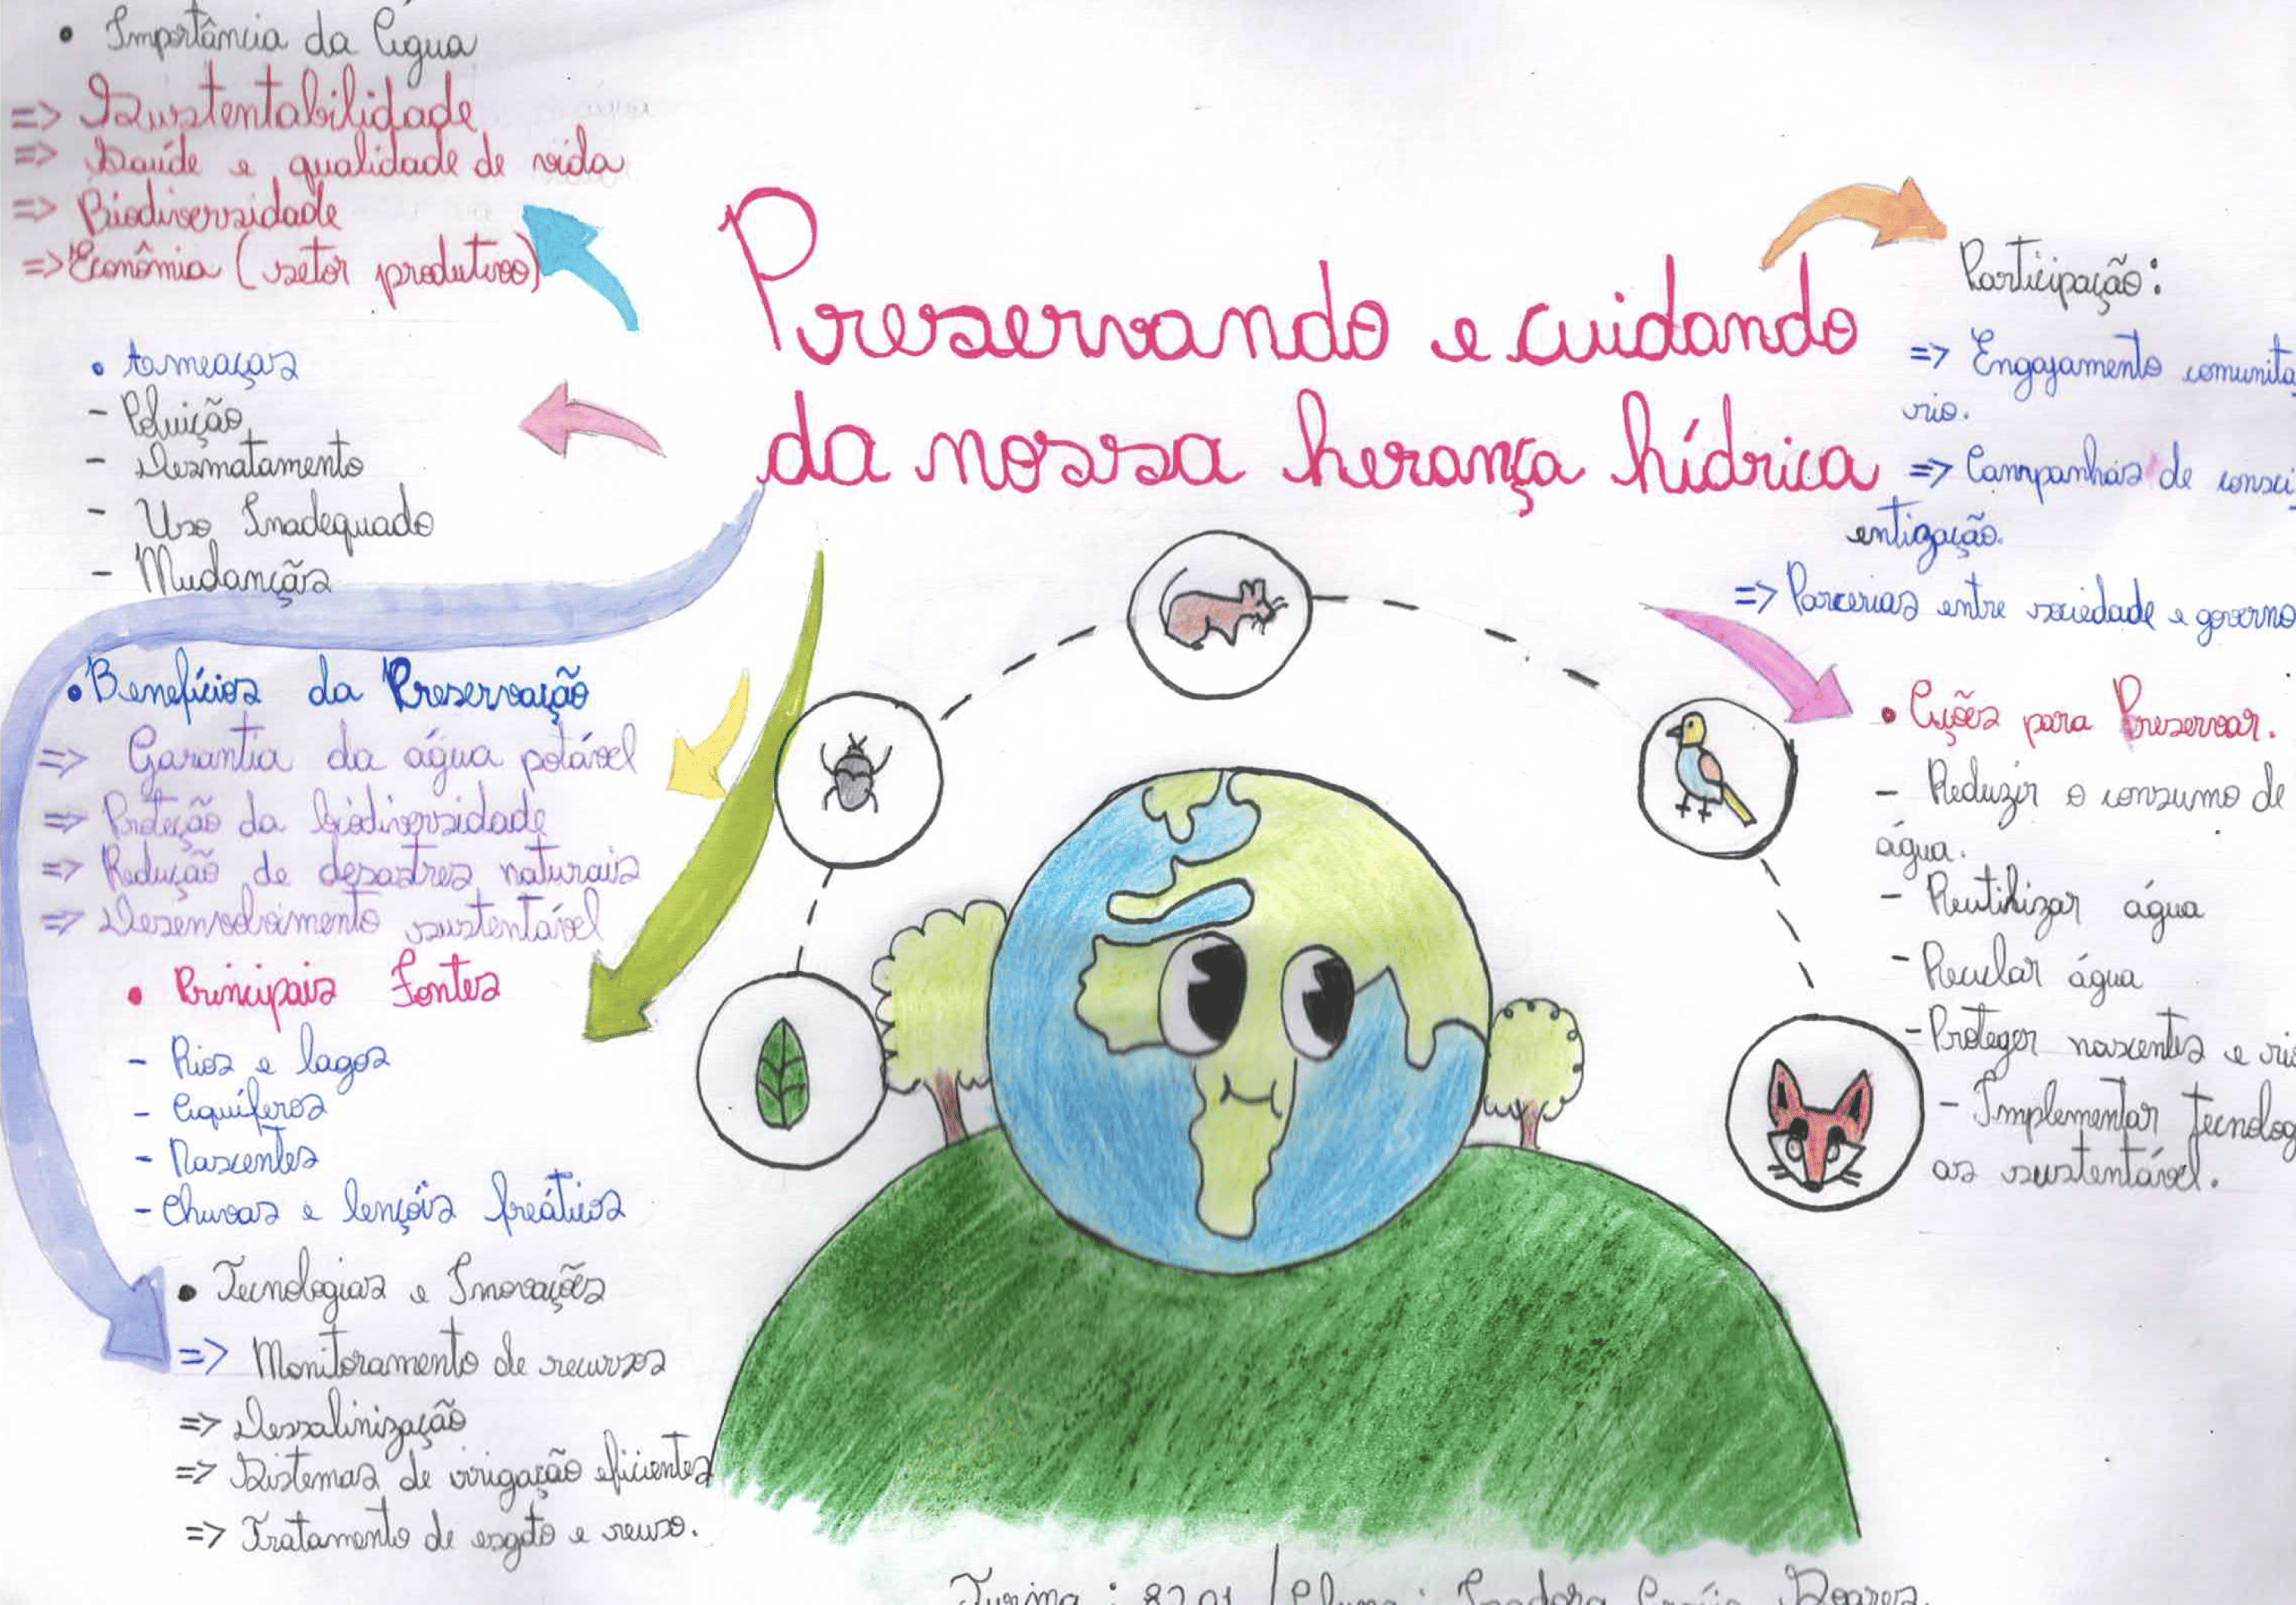 • Importância da Água
=> Sustentabilidade
=> Saúde e qualidade de vida
=> Biodiversidade
=> Econômia (setor produtivo)
• Ameaças
- Poluição
- Desmatamento
- Uso Inadequado
- Mudanças
• Benefícios da Preservação
=> Garantia da água potável
=> Proteção da biodiversidade
=> Redução de desastres naturais
=> Desenvolvimento sustentável
• Principais Fontes
- Rios e lagos
- Aquíferos
- Nascentes
- Chuvas e lençóis freáticos
• Tecnologias e Inovações
=> Monitoramento de recursos
=> Dessalinização
=> Sistemas de irrigação eficientes
=> Tratamento de esgoto e reuso.
Preservando e cuidando
da nossa herança hídrica
Participação:
=> Engajamento comunitá
rio.
=> Campanhas de consci
entização.
=> Parcerias entre sociedade e governo
• Ações para Preservar.
- Reduzir o consumo de
água.
- Reutilizar água
- Reciclar água
- Proteger nascentes e rio
- Implementar tecnolog
as sustentável.
Turma: 8201 / Aluna: Isadora Soares